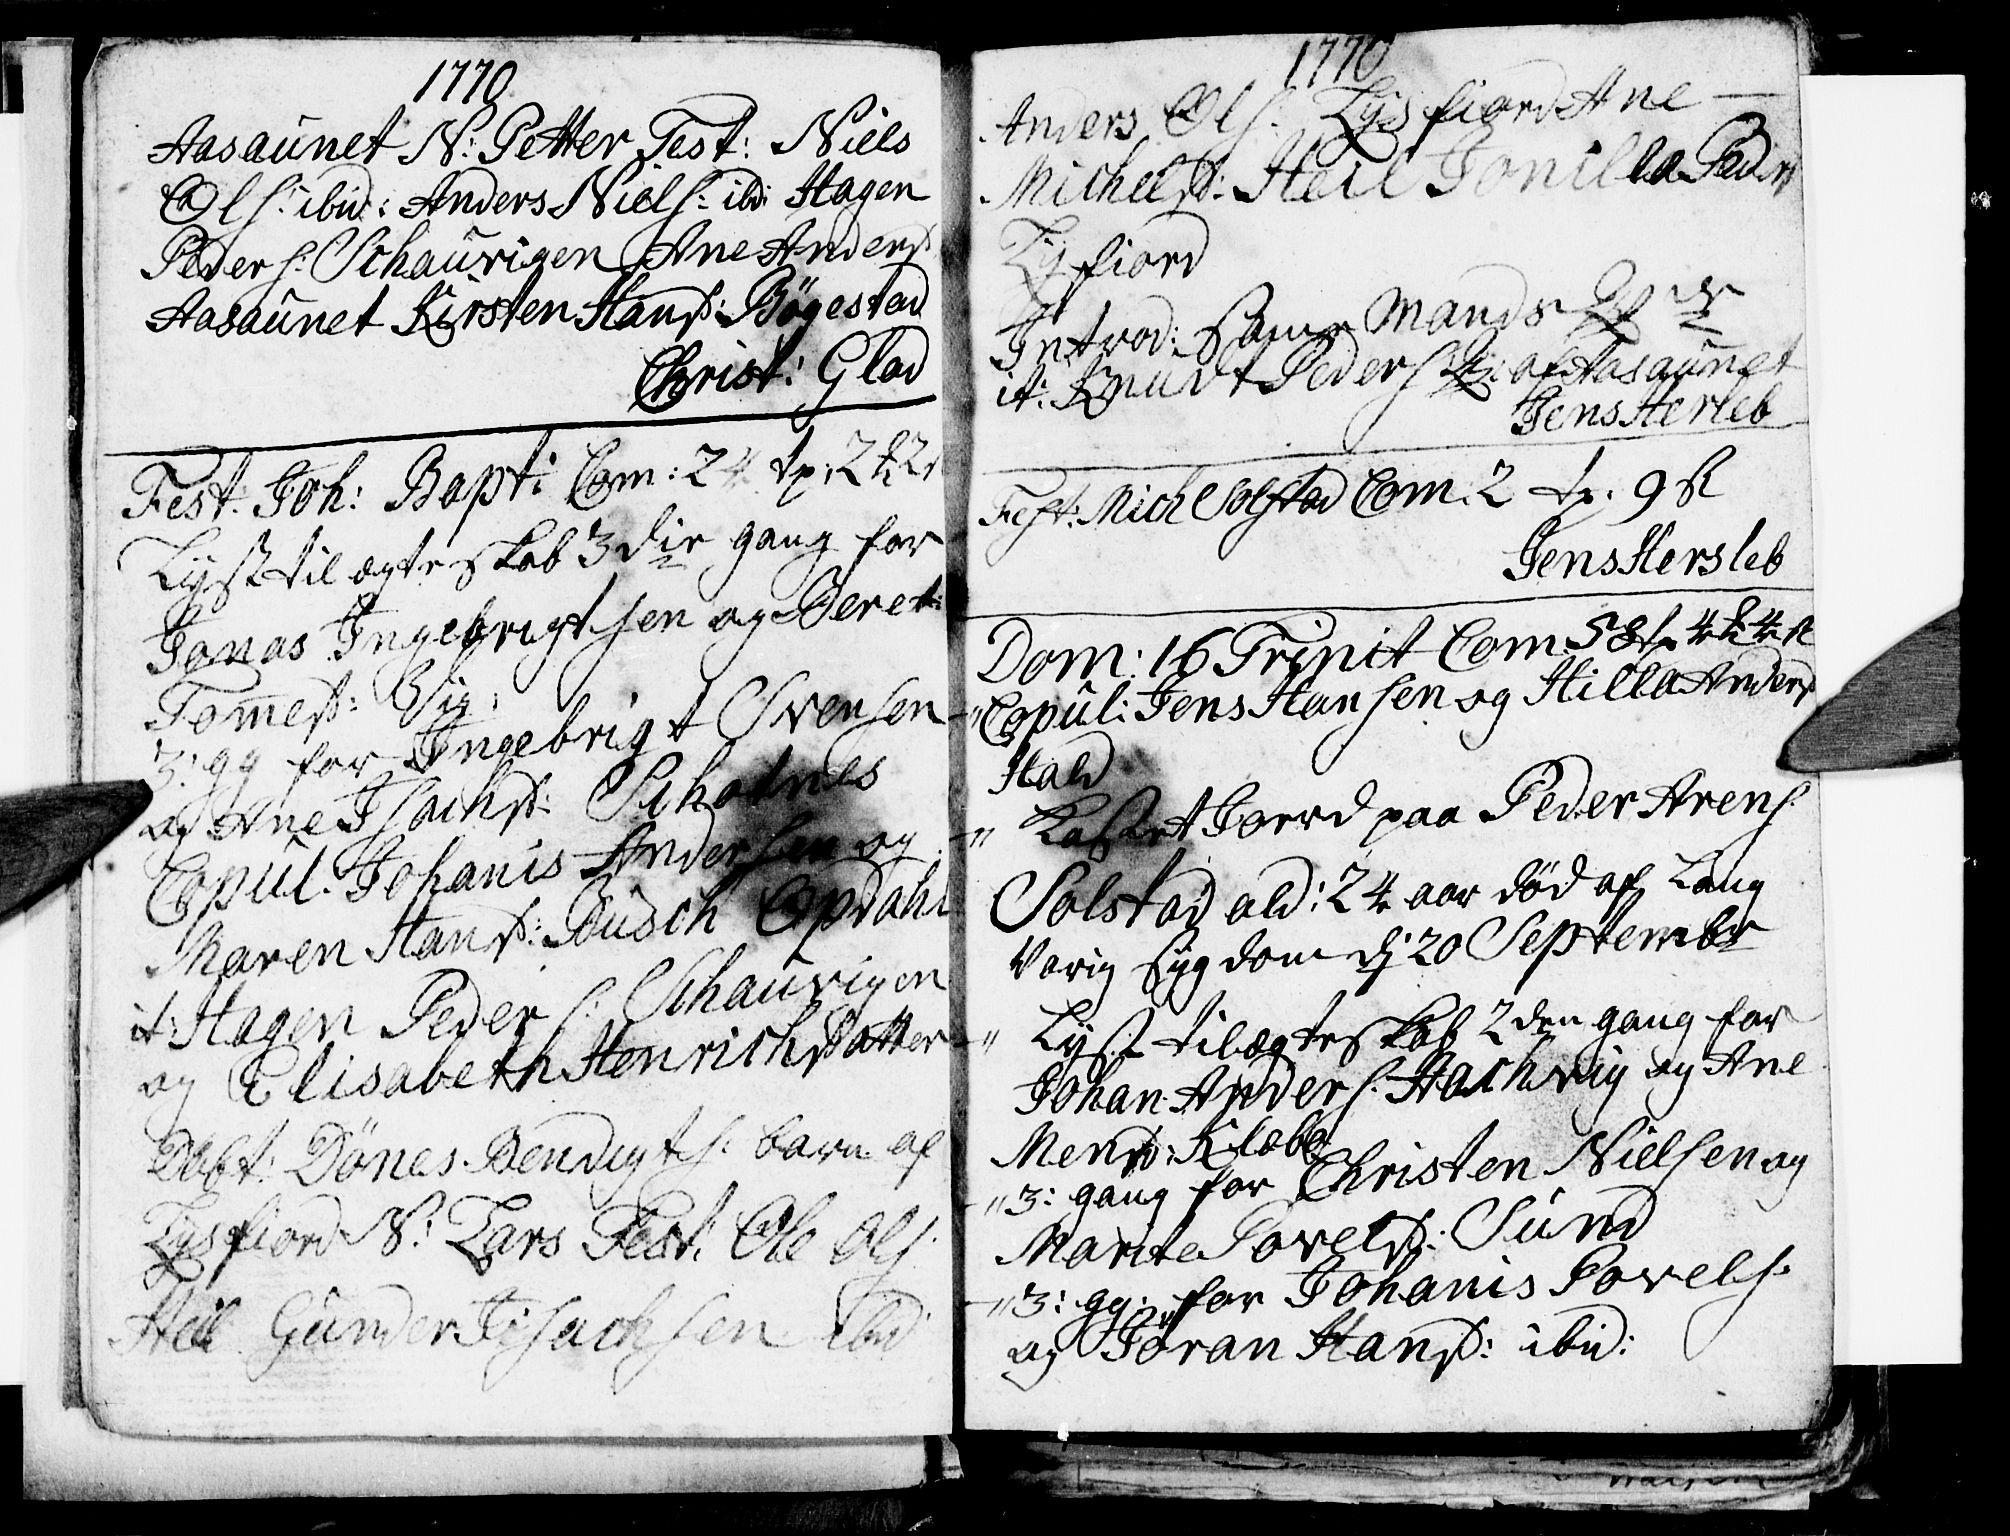 1770
Aasaunet N: Petter Test: Niels
Ols: ibid: Anders Niels: ibd: Hagen
Peders: Schauvigen Ane Anders
Aasaunet Kirsten Hansd: Bögestad
Christ: Glad
Fest: Joh: Bapti Com: 24 tp: 2
Lyst til ægteskab 3die gang for
Jonas Ingebrigtsen og Beret:
Tomesd: Vig:
3: gg for Ingebrigt Svensen
og Ane Isachsd: Schotnes
Copul: Johanis Andersen og
Maren Hansd: Busch Opdahl
it: Hagen Peders: Schauvigen
og Elisabeth Henrichsdatter
Döbt: Dönes Bendigts: barn af
Lysfiord N: Lars Test: Ole Ols:
Heil Gunder Isachsen ibid:
1770
Anders Ols: Lysfiord Ane
Michelsd: Heil Jonilla Peders
Lysfiord
Introd: samme Mands
it: Knudt Peders: af Aasaunet
Jens Hersleb
Fest: Mich Solstad Com: 2 tp: 9 ß
Jens Hersleb
Dom: 16 Trinit Com 58 tp 4 4 ß
" Copul: Jens Hansen og Hilla Anders
Hald
" Kastet Jord paa Peder Arens:
Solstad ald: 24 aar död af Lang
varig sygdom dj 20 Septembr
" Lyst til ægteskab 2den gang for
Johan Anders: Hachvig og Ane
Mensd: Klæbo
" 3: gang for Christen Nielsen og
Marite Povelsd: Sund
" 3: gg: for Johanis Povels:
og Jöran Hansd: ibid: